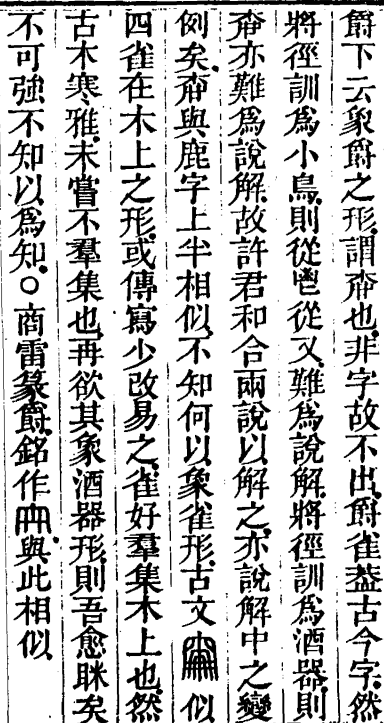 爵下云象爵之形謂𩰪也非字故不出爵雀葢古今字然
將徑訓爲小鳥則從鬯從又難爲說解將徑訓爲酒器則
亦難爲說解故許君和合兩說以解之亦說解中之變
例矣與鹿字上半相似不知何以象雀形古文似
四雀在木上之形或傳寫少改易之雀好羣集木上也然
古木寒雅未嘗不羣集也再欲其象酒器形則吾愈眯矣
不可強不知以爲知○商雷篆爵銘作與此相似